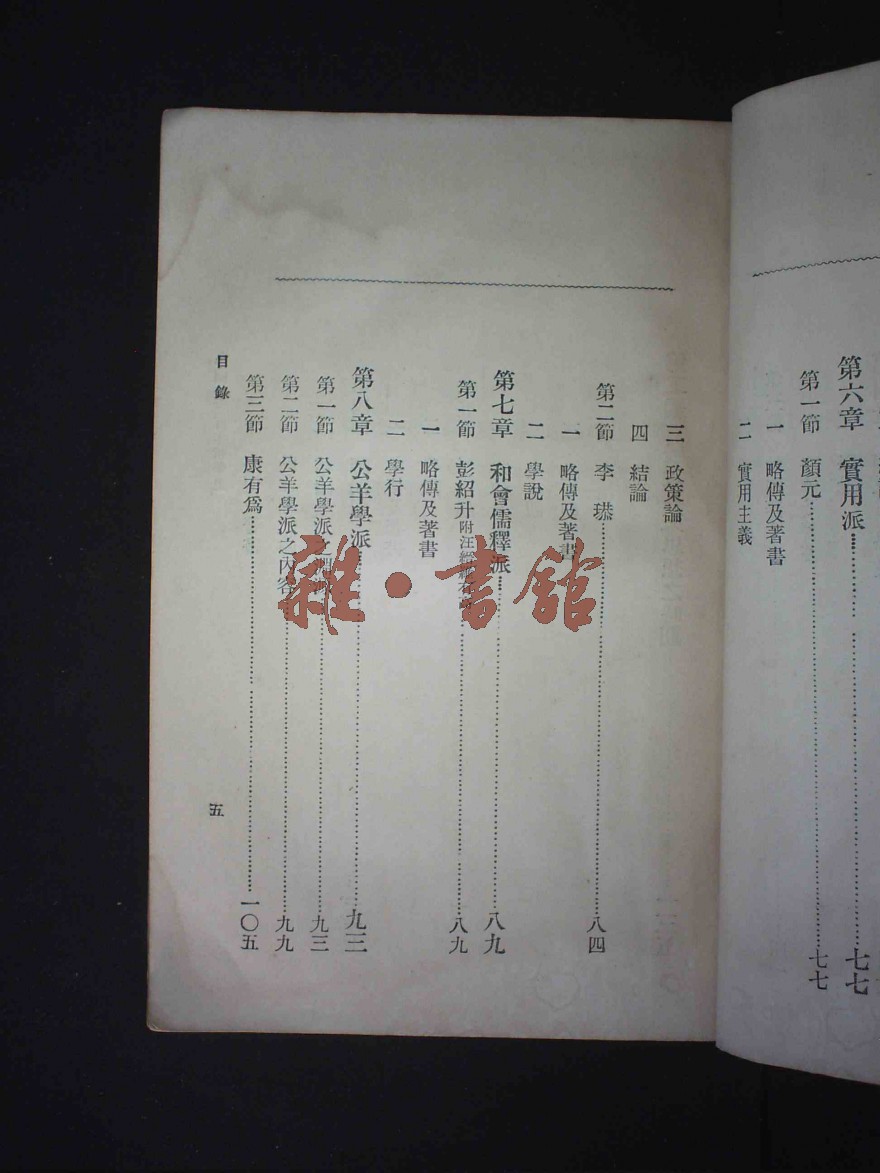 第六章 實用派……七七
第一節 顏元……七七
一 略傳及著書
二 實用主義
三 政策論
四 結論
第二節 李 塨……八四
一 略傳及著書
二 學說
第七章 和會儒釋派……八九
第一節 彭紹升附汪縉……八九
一 略傳及著書
二 學行
第八章 公羊學派……九三
第一節 公羊學派之……九三
第二節 公羊學派之內容……九九
第三節 康有爲……一〇五
目錄
五
雜·書館